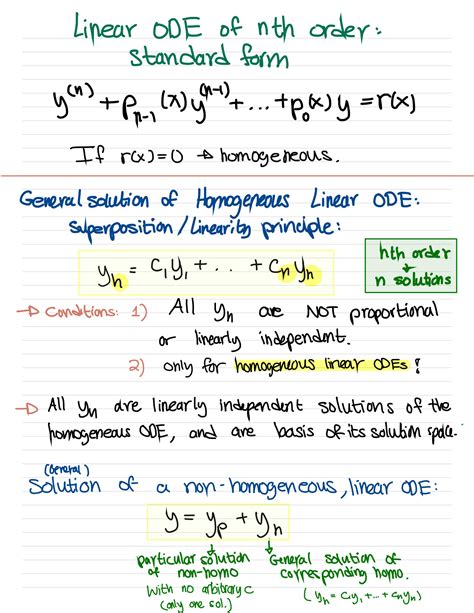 Linear ODE of nth order:
standard form
y⁽ⁿ⁾ + pₙ₋₁(x)y⁽ⁿ⁻¹⁾ + ... + p₀(x)y = r(x)
If r(x)=0 → homogeneous.
General solution of Homogeneous Linear ODE:
superposition/linearity principle:
yₕ = c₁y₁ + .. + cₙyₙ
nth order
↓
n solutions
→ Conditions: 1) All yₙ are NOT proportional
or linearly independent.
2) only for homogeneous linear ODEs!
→ All yₙ are linearly independent solutions of the
homogeneous ODE, and are basis of its solution space.
(General)
Solution of a non-homogeneous, linear ODE:
y = yₚ + yₕ
particular solution
of non-homo
With no arbitrary C
(only one sol.)
General solution of
corresponding homo.
(yₕ = c₁y₁ + ... + cₙyₙ)